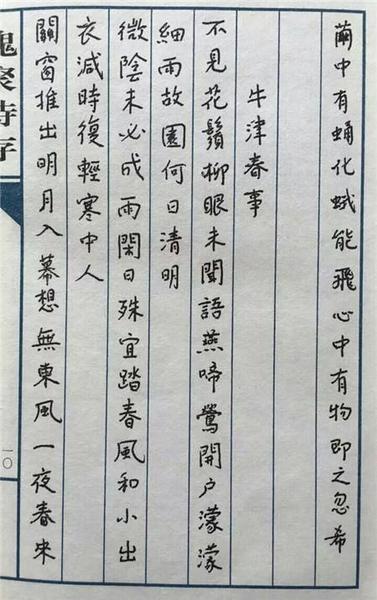 繭中有蛹化蛾能飛心中有物即之忽希
牛津春事
不見花鬚柳眼未聞語燕啼鶯開戶濛濛
細雨故園何日清明
微陰未必成雨閑日殊宜踏春風和小出
衣減時復輕寒中人
關窗推出明月入幕想無東風一夜春來
一〇